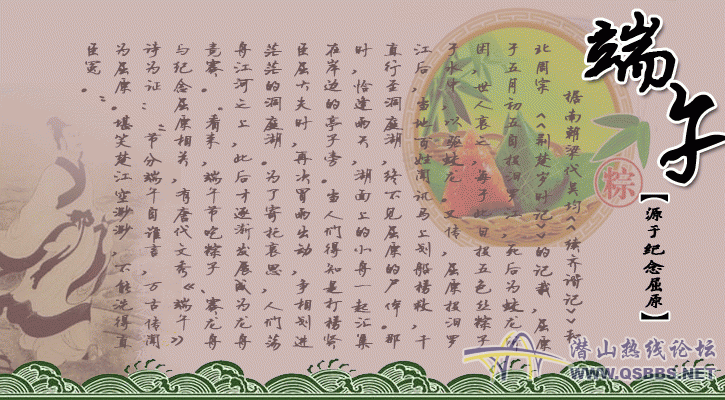 端午
【源于纪念屈原】
据南朝梁代吴均《续齐谐记》和
北周宗《《荆楚岁时记》的记载,屈原
于五月初五自投汨罗江,死后为蛟龙所
困,世人哀之,每于此日投五色丝粽子
于水中,以驱蛟龙。又传,屈原投汨罗
江后,当地百姓闻讯马上划船捞救,
直行至洞庭湖,终不见屈原的尸体。那
时,恰逢雨天,湖面上的小舟一起汇集
在岸边的亭子旁。当人们得知是打捞贤
臣屈大夫时,再次冒雨出动,争相划进
茫茫的洞庭湖。为了寄托哀思,人们荡
舟江河之上,此后才逐渐发展成为龙舟
竞赛。看来,端午节吃粽子、赛龙舟
与纪念屈原相关,有唐代文秀《端午》
诗为证:“节分端午自谁言,万古传闻
为屈原。堪笑楚江空渺渺,不能洗得直
臣冤。”
粽
潜山热线论坛
WWW.QSBBS.NET